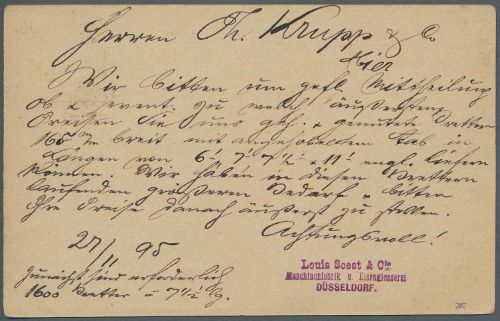 Herren Th. Krupp & Co
Hier
Wir bitten um gefl. Mittheilung
ob & event. zu welch' äußersten
Preisen Sie uns geh. & genutete Bretter
breit mit angehobeltem Stab in
Längen von 6' 7' 7½' & 11' engl. liefern
können. Wir haben in diesen Brettern
laufenden größeren Bedarf & bitten
Ihre Preise danach äußerst zu stellen.
Achtungsvoll!
27/11 95
Zunächst sind erforderlich
1600 Bretter à 7½' lg.
Louis Soest & Cie
Maschinenfabrik u. Eisengiesserei
DÜSSELDORF.